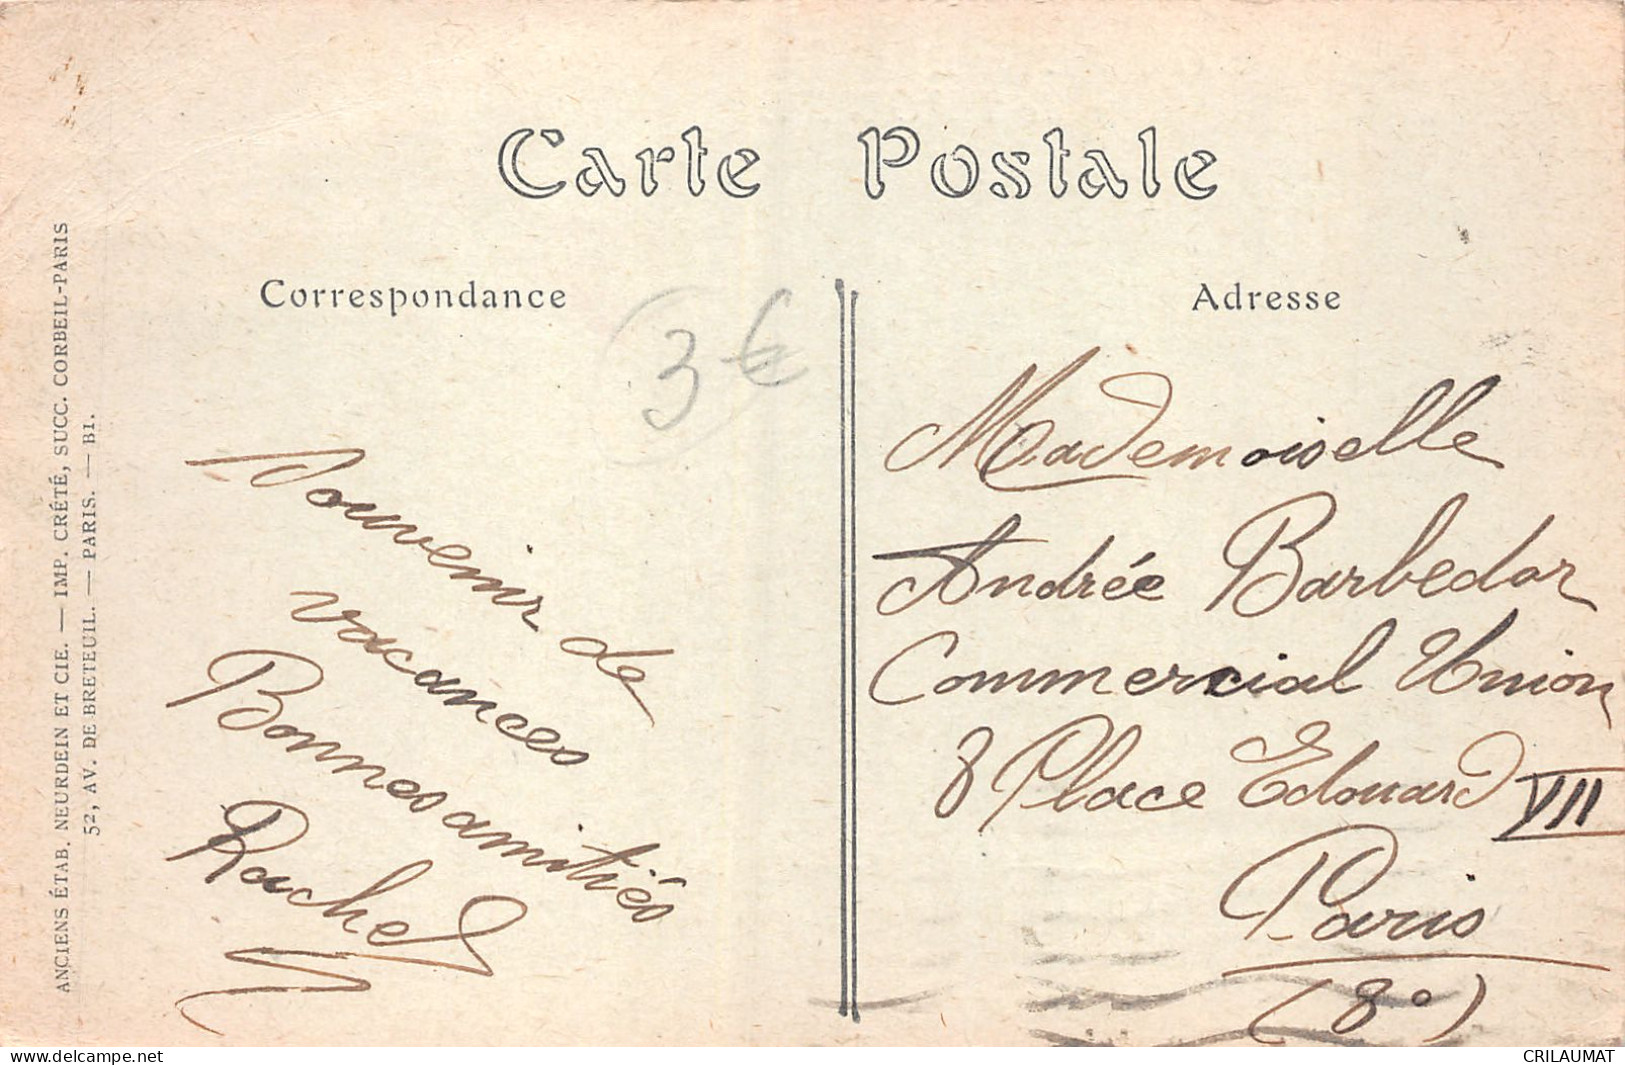 Carte Postale
Correspondance
3€
Souvenir de
vacances
Bonnes amitiés
Rachel
Adresse
Mademoiselle
Andrée Barbedor
Commercial Union
8 Place Edouard VII
Paris
(8º)
ANCIENS ÉTAB. NEURDEIN ET CIE. — IMP. CRÉTÉ, SUCC. CORBEIL-PARIS
52, AV. DE BRETEUIL. — PARIS. — BI.
www.delcampe.net
CRILAUMAT